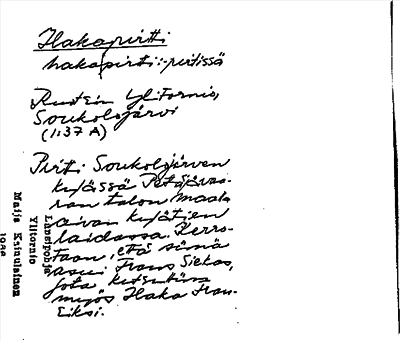 Hakapirtti
hakapirtti:-pirtissä
Ylitornio,
Soukolojärvi
(1:37 A)
Pirtti Soukolojärven
kylässä Petäjävaa-
ran talon maalla
aivan kylätien
laidassa. Kerro-
taan, että siinä
asui Frans Siekas,
jota kutsuttiin
myös Haka Fran-
siksi.
Länsipohja
Ylitornio
Maija Kainulainen